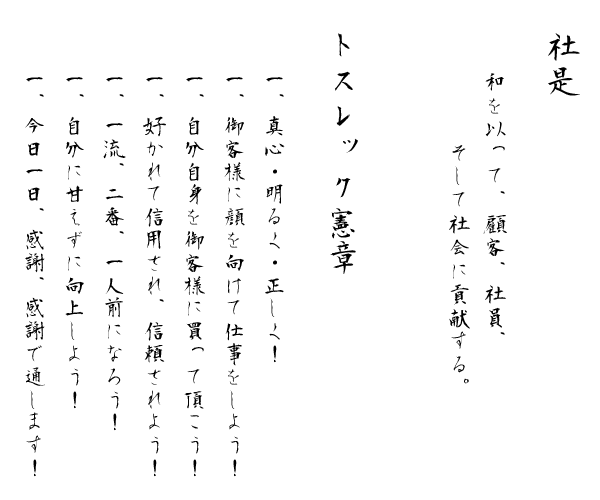 社是
和を以って、顧客、社員、
そして社会に貢献する。
トスレック憲章
一、真心・明るく・正しく！
一、御客様に顔を向けて仕事をしよう！
一、自分自身を御客様に買って頂こう！
一、好かれて信用され、信頼されよう！
一、一流、二番、一人前になろう！
一、自分に甘えずに向上しよう！
一、今日一日、感謝、感謝で通します！